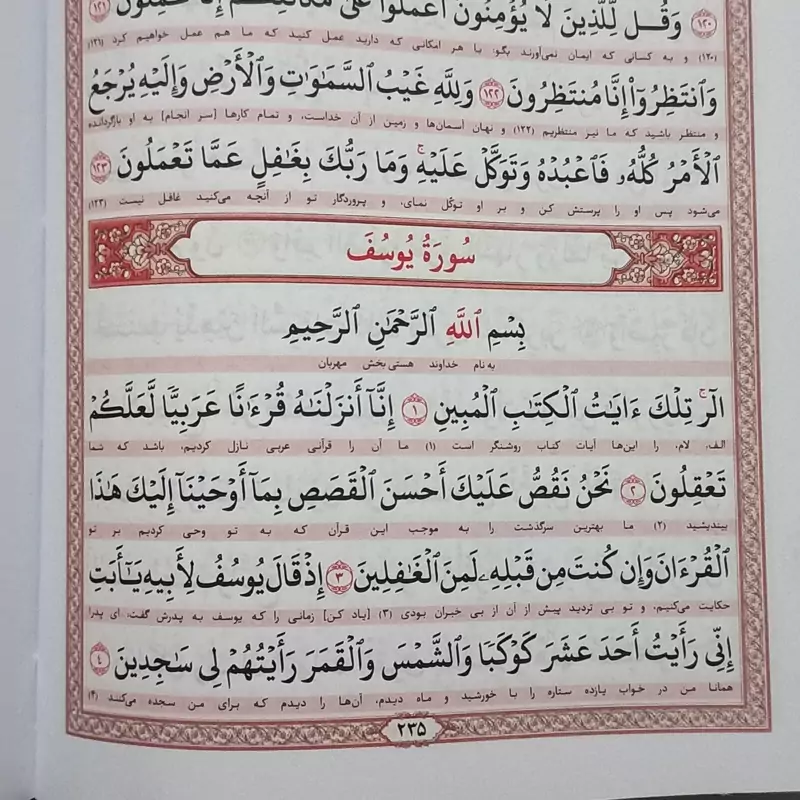 وَقُل لِّلَّذِينَ لَا يُؤْمِنُونَ ٱعْمَلُوا۟ عَلَىٰ مَكَانَتِكُمْ إِنَّا عَٰمِلُونَ ١٢١
(۱۲۰) و به کسانی که ایمان نمی‌آورند بگو: با هر امکانی که دارید عمل کنید که ما هم عمل خواهیم کرد (۱۲۱)
وَٱنتَظِرُوٓا۟ إِنَّا مُنتَظِرُونَ ١٢٢ وَلِلَّهِ غَيْبُ ٱلسَّمَٰوَٰتِ وَٱلْأَرْضِ وَإِلَيْهِ يُرْجَعُ
و منتظر باشید که ما نیز منتظریم (۱۲۲) و نهان آسمان‌ها و زمین از آن خداست، و تمام کارها [سر انجام] به او بازگردانده
ٱلْأَمْرُ كُلُّهُۥ فَٱعْبُدْهُ وَتَوَكَّلْ عَلَيْهِ ۚ وَمَا رَبُّكَ بِغَٰفِلٍ عَمَّا تَعْمَلُونَ ١٢٣
می‌شود پس او را پرستش کن و بر او توکّل نمای، و پروردگار تو از آنچه می‌کنید غافل نیست (۱۲۳)
سُورَةُ يُوسُفَ
بِسْمِ ٱللَّهِ ٱلرَّحْمَٰنِ ٱلرَّحِيمِ
به نام خداوند هستی بخش مهربان
الٓر ۚ تِلْكَ ءَايَٰتُ ٱلْكِتَٰبِ ٱلْمُبِينِ ١ إِنَّآ أَنزَلْنَٰهُ قُرْءَٰنًا عَرَبِيًّا لَّعَلَّكُمْ
الف، لام، را این‌ها آیات کتاب روشنگر است (۱) ما آن را قرآنی عربی نازل کردیم، باشد که شما
تَعْقِلُونَ ٢ نَحْنُ نَقُصُّ عَلَيْكَ أَحْسَنَ ٱلْقَصَصِ بِمَآ أَوْحَيْنَآ إِلَيْكَ هَٰذَا
بیندیشید (۲) ما بهترین سرگذشت را به موجب این قرآن که به تو وحی کردیم بر تو
ٱلْقُرْءَانَ وَإِن كُنتَ مِن قَبْلِهِۦ لَمِنَ ٱلْغَٰفِلِينَ ٣ إِذْ قَالَ يُوسُفُ لِأَبِيهِ يَٰٓأَبَتِ
حکایت می‌کنیم، و تو بی تردید پیش از آن از بی خبران بودی (۳) [یاد کن] زمانی را که یوسف به پدرش گفت: ای پدر!
إِنِّى رَأَيْتُ أَحَدَ عَشَرَ كَوْكَبًا وَٱلشَّمْسَ وَٱلْقَمَرَ رَأَيْتُهُمْ لِى سَٰجِدِينَ ٤
همانا من در خواب یازده ستاره را با خورشید و ماه دیدم، آن‌ها را دیدم که برای من سجده می‌کنند (۴)
۲۳۵